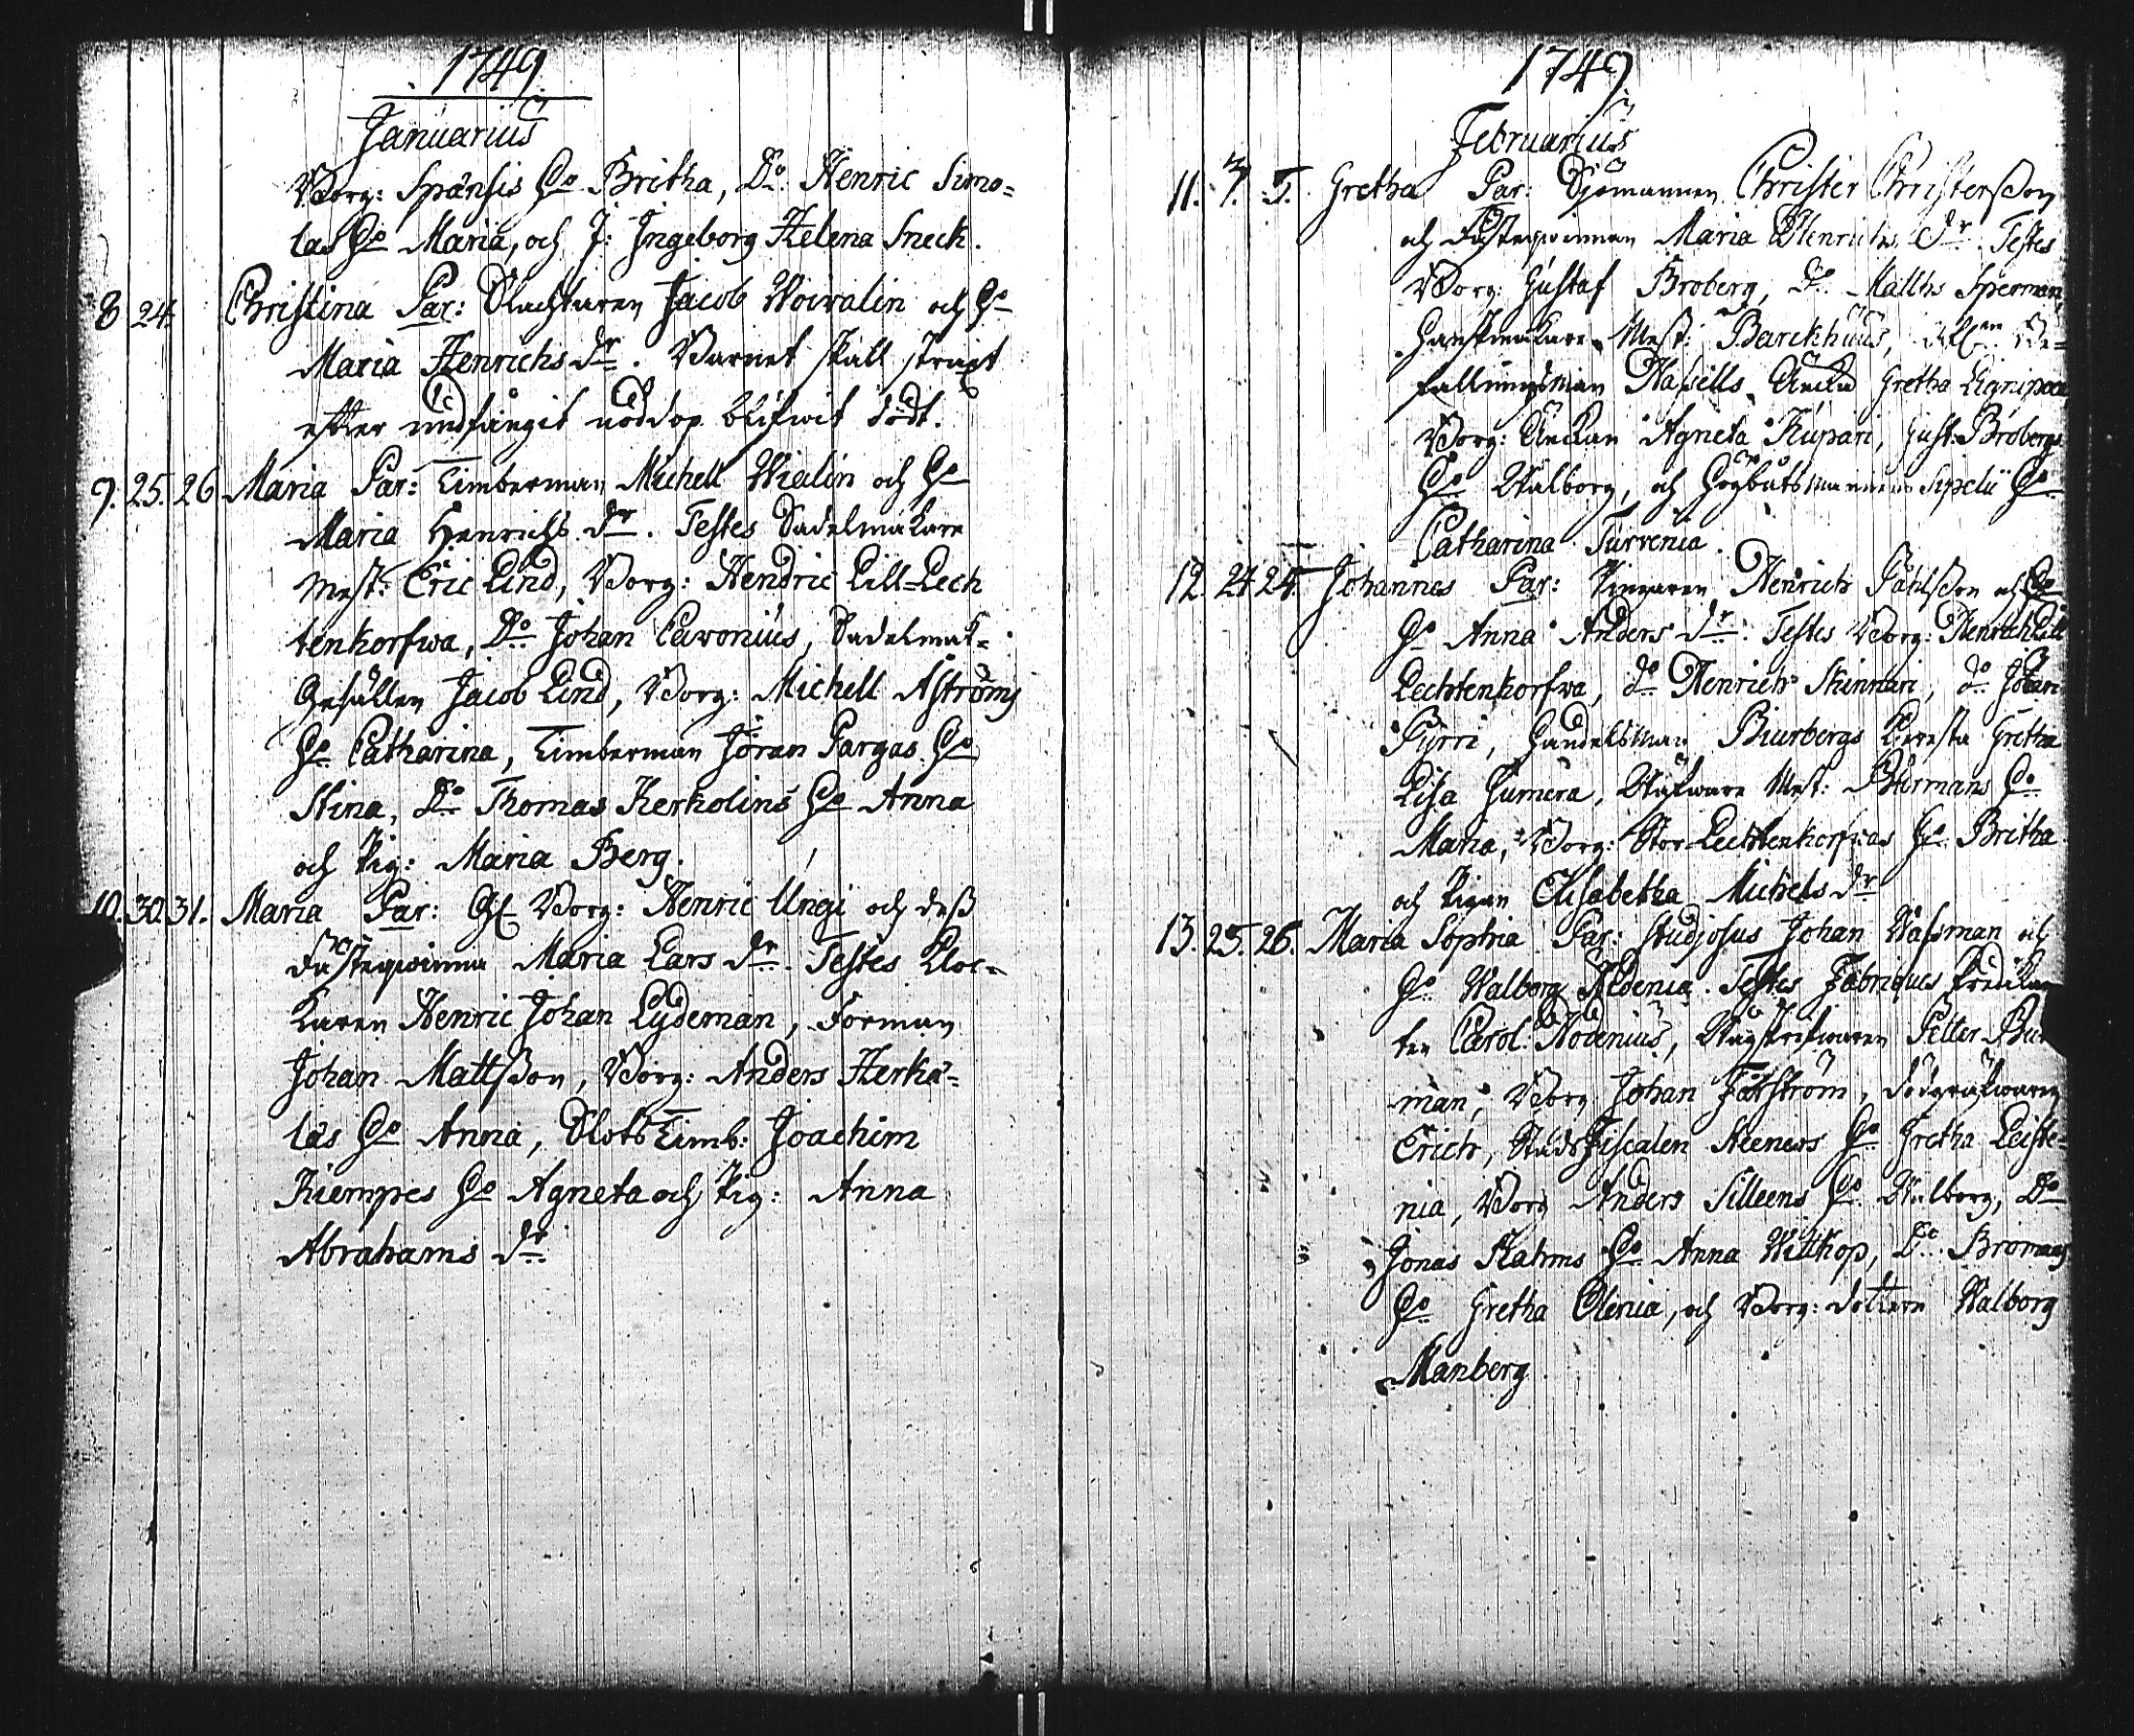 1749
Januarius
Borg: Spänsis H:o Britha, D:o Henric Simo=
las H:o Maria, och J: Ingeborg Helena Sneck.
8 24. Christina Par: Slachtaren Jacob Woivalin och H:o
Maria Henrichs D:r. Barnet skall straxt
efter undfångit nöddop blifwit dödt.
9. 25. 26 Maria Par: Timberman Michell Wialin och H:o
Maria Henrichs D:r. Testes Sadelmakare
Mest: Eric Lind, Borg: Hendric Lill-Lech
tenkorfwa, D:o Johan Cavonius, Sadelmak=
Gesällen Jacob Lind, Borg: Michell Aströms
H:o Catharina, Timberman Jöran Pargas H:o
Stina, D:o Thomas Kerkolins H:o Anna
och Pig: Maria Berg.
10. 30. 31. Maria Par: Gl Borg: Henric Ungi och dess
Fästeqwinna Maria Lars D:r. Testes Kloc=
karen Henric Johan Lydeman, Forman
Johan Mattsson, Borg: Anders Herka=
las H:o Anna, Slots Timb: Joachim
Kiempes H:o Agneta och Pig: Anna
Abrahams D:r
1749
Februarius
11. 3. 5. Gretha Par: Sjömannen Christer Christersson
och Fästeqwinnan Maria Henrichs D:r. Testes
Borg: Gustaf Broberg, D:o Matths Sperman,
Handskmakare Mest: Barckhuus, Be=
fallningsman Hasells Enckia Gretha
Borg: Enckan Agneta Kupari, Gust: Brobergs
H:o Walborg, och Högbåtsmannen Sipelii H:o
Catharina Turvenia.
12. 24 24. Johannes Par: Timaren Henrich Påhlsson och H:o
H:o Anna Anders D:r. Testes Borg: Henrich Lill
Lechtenkorfwa, d:o Henrich Skinnari, d:o Johan
Pyrri, Handelsman Biurbergs Gretha
Lisa Humera, Wäfware Mest: Burmans H:o
Maria, Borg: Stor-Lechtenkorfwas H:o Britha
och Pigan Elisabetha Michels D:r
13. 25. 26. Maria Sophia Par: Studiosus Johan Wassman och
H:o Walborg Aedenia. Testes Fabriques Predikan
ten Carol: Rodenius, Wågskrifwaren Petter Bur
man, Borg Johan Forström,
Erich, Stads Fiscalen Steeners H:o Gretha Leiste=
nia, Borg Anders Silleens H:o Walborg, D:o
Jonas Rahms H:o Anna Witkop, D:o Bromans
H:o Gretha Olenia, och Borg: dottern Walborg
Manberg.